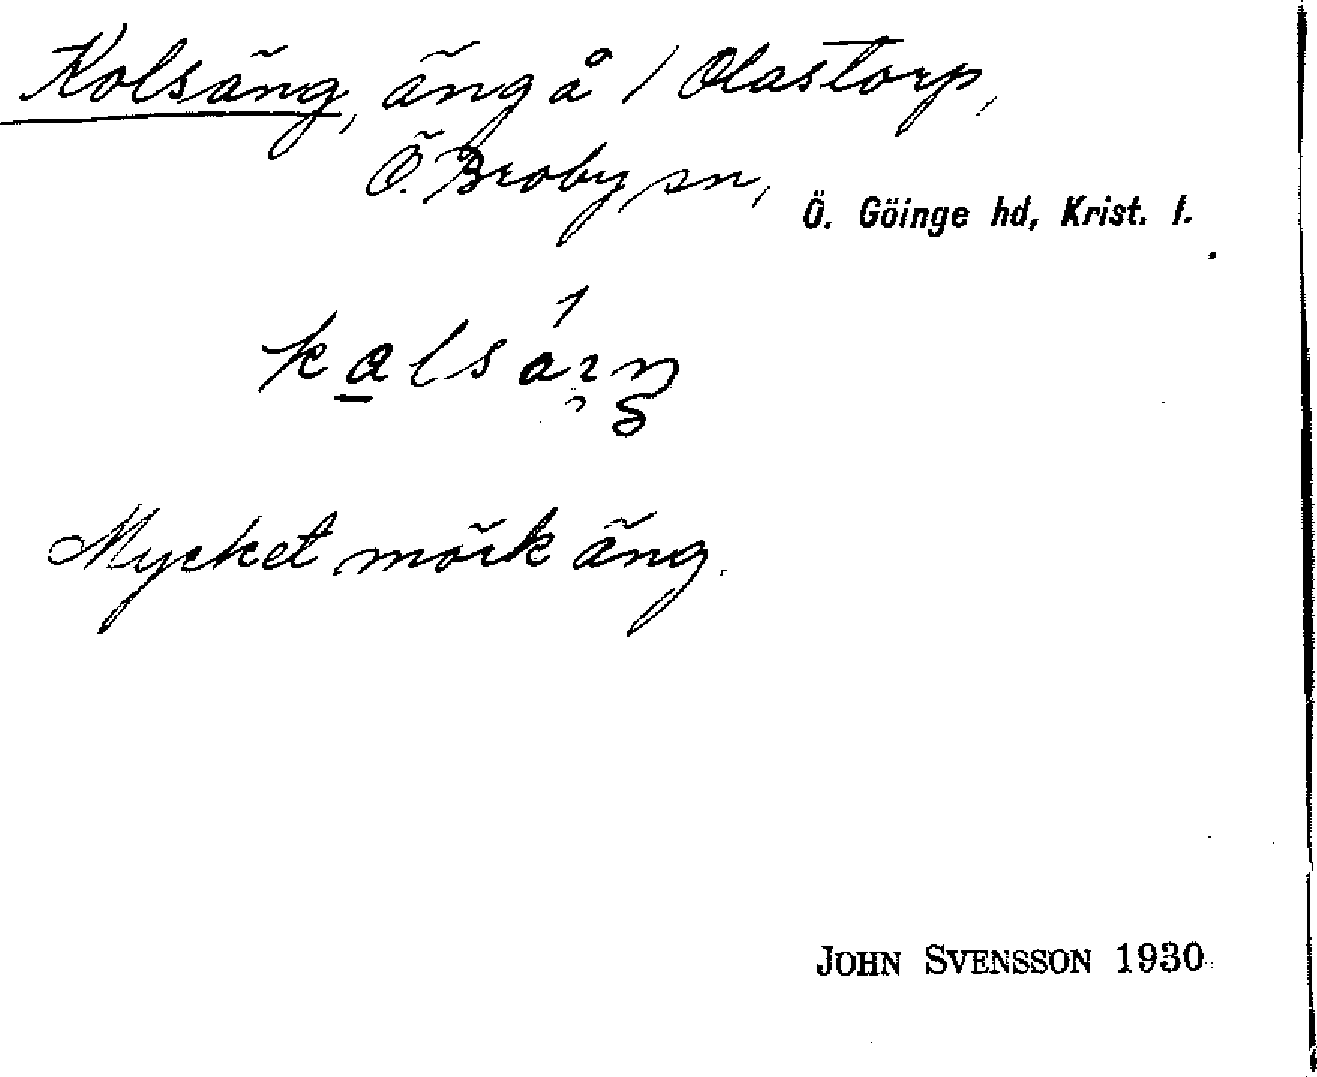 Kolsäng, äng å 1 Olastorp,
Ö. Broby sn,
Ö. Göinge hd, Krist. l.
Mycket mörk äng.
JOHN SVENSSON 1930